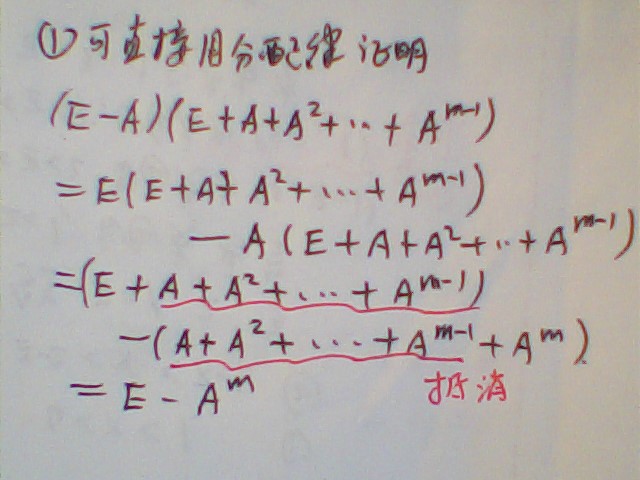 ①可直接用分配律证明
(E-A)(E+A+A²+…+A^{m-1})
=E(E+A+A²+…+A^{m-1})
-A(E+A+A²+…+A^{m-1})
=(E+A+A²+…+A^{m-1})
-(A+A²+…+A^{m-1}+A^m)
=E-A^m 抵消